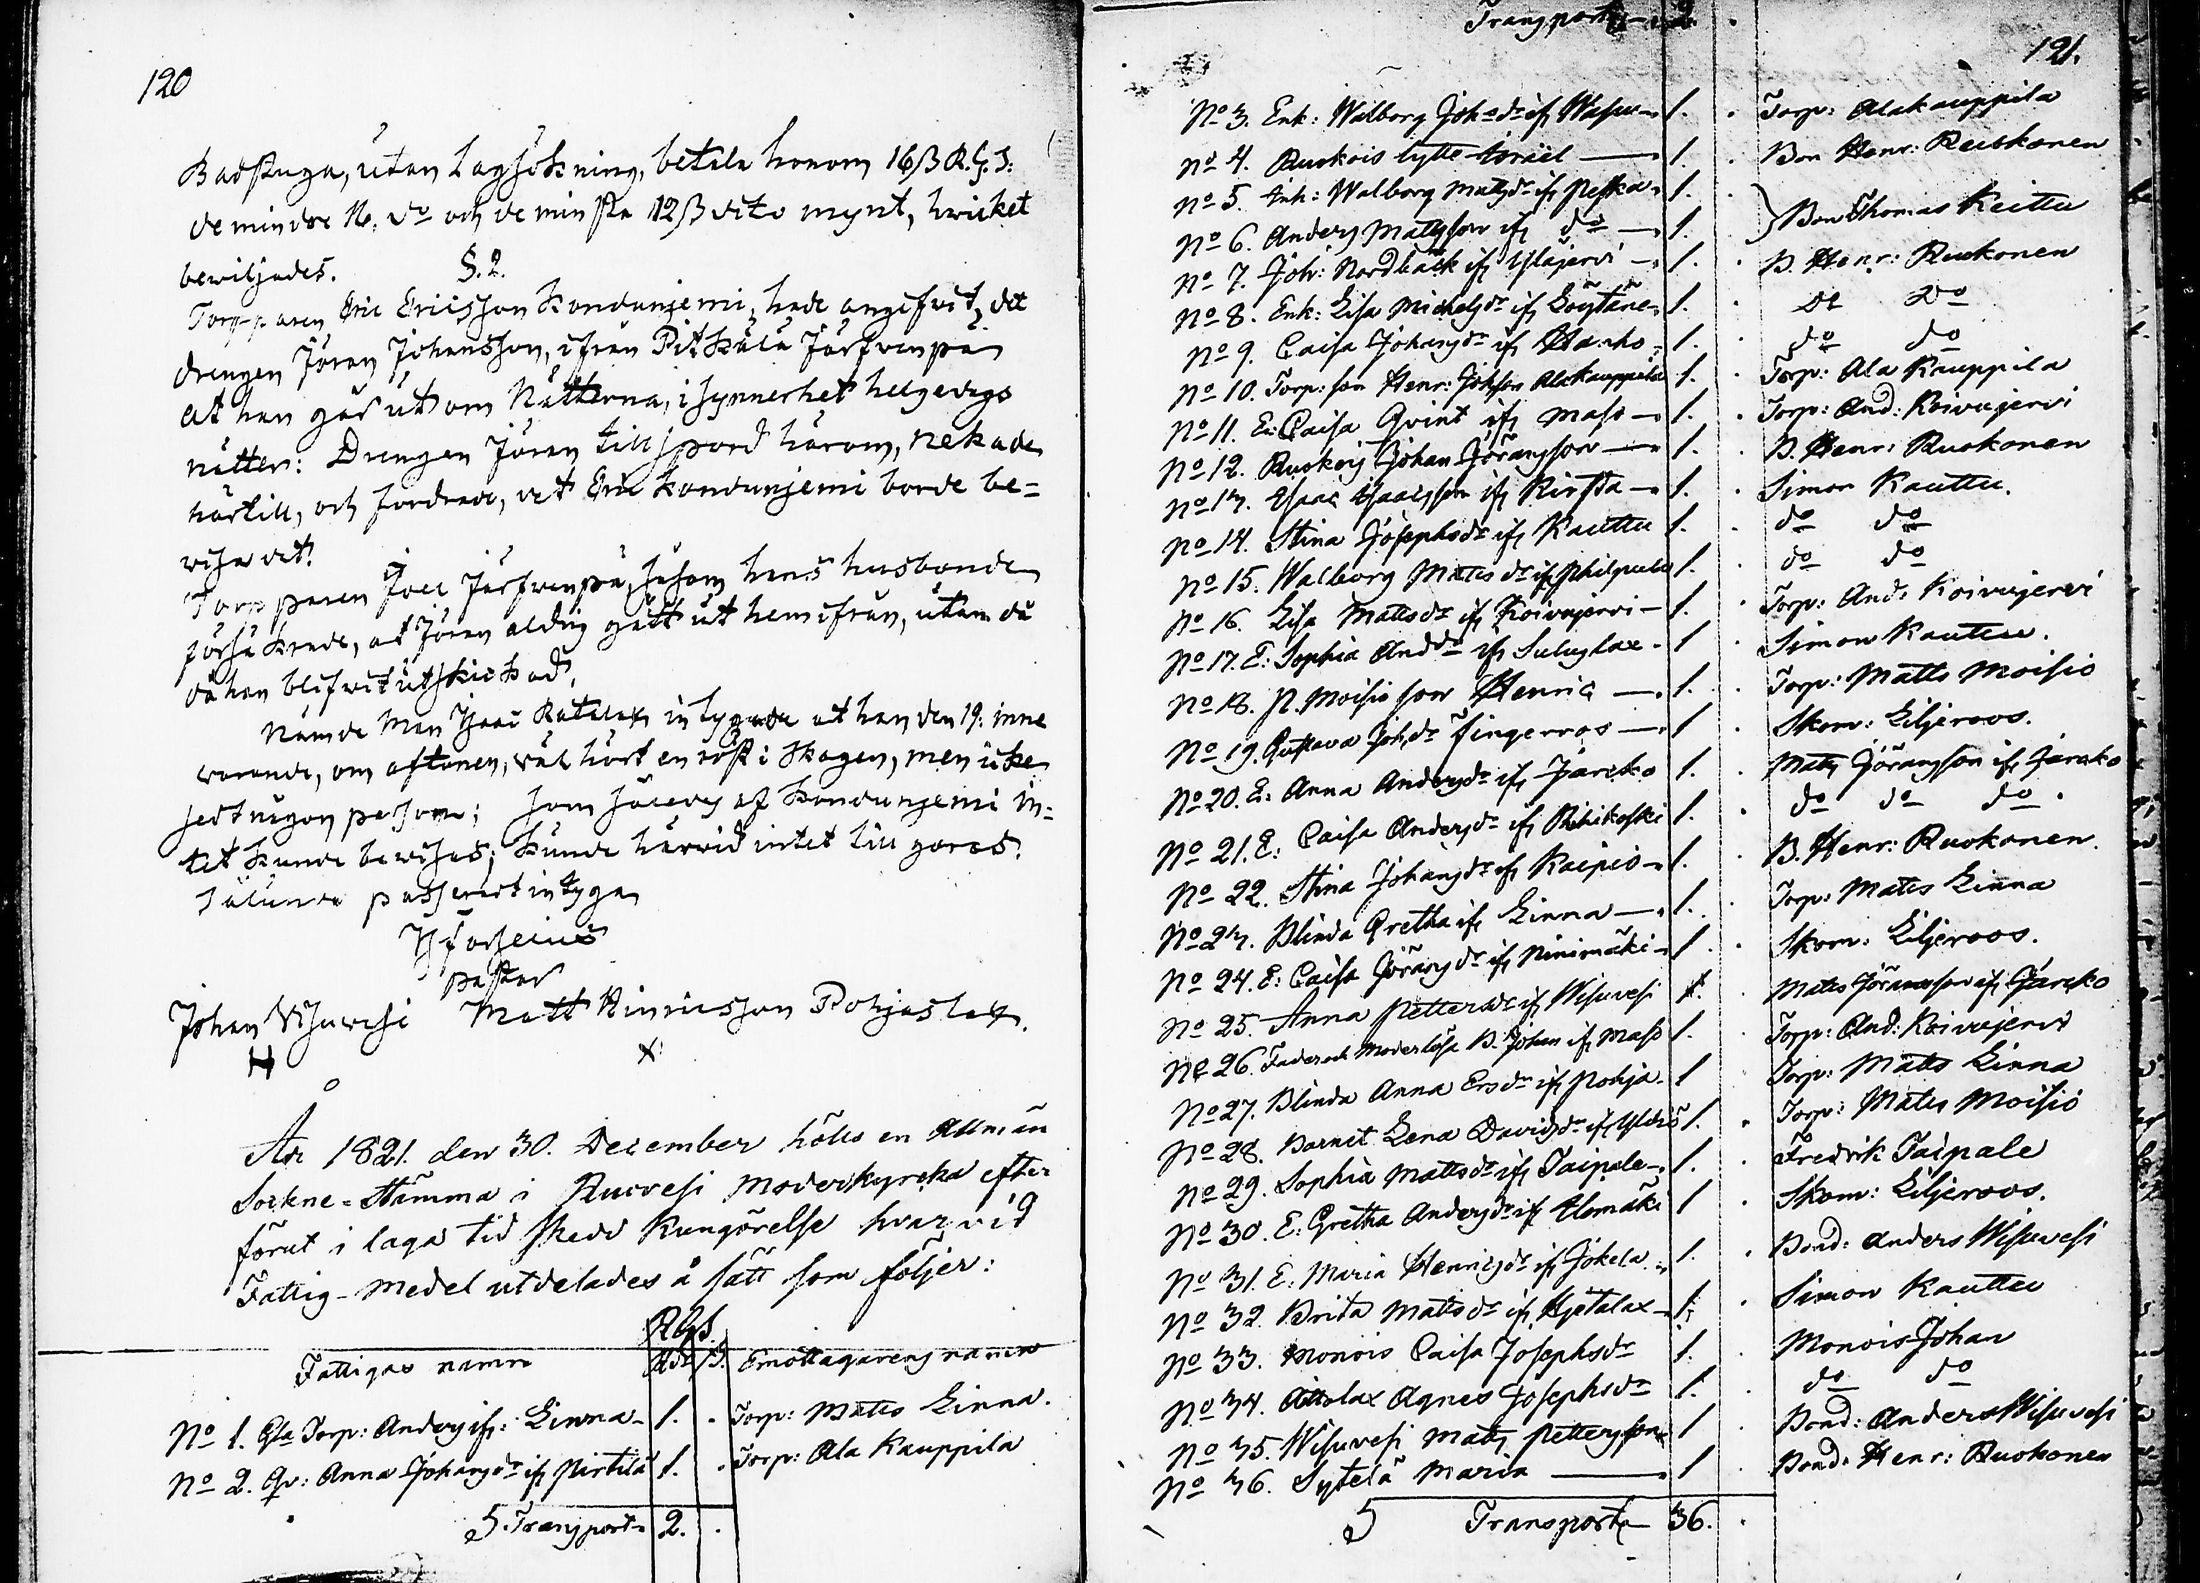 120
Badstuga, utan Lagsökning, betala honom 16 ß R.G.S.
de mindre 16. do och de minsta 12 ß dito mynt, hvilket
beviljades.
§. 2.
Torpparen Eric Ericsson Kondunjemi, hade angifvit, det
drengen Jören Johansson, ifrån Pitkälä Järfvenpä
at han går ut om Nätterna, i synnerhet helgedags
nätter: Drengen Jören tillspord härom, nekade
härtill, och fordrade, det Eric Kondunjemi borde be=
visa det.
Torpparen Joel Järfvenpä, såsom hans husbonde
försäkrade, at Jören aldrig gått ut hemifrån, utom då
då han blifvit utskickad.
Nämde Man Isaac Ratalax intygade at han den 19. inne
varande, om aftonen, väl hört en röst i skogen, men icke
sedt någon person; som således af Kondunjemi in=
tet kunde bevisas; kunde härvid intet till göras.
Sålunda passeradt intyga
Forselius
pastor
Johan Visuvesi Matt Hinricsson Pohjaslax.
H X
År 1821. den 30. December hölts en Allmän
Sockne=Stämma i Ruovesi Moderkyrcka efter
förut i laga tid skedd Kungörelse hvarvid
Fattig-Medel utdelades å sätt som följer:
RGS.
Fattigas namn Rdr ß. Emottagarens namn
No 1. Gla Torp: Anders ifr: Linna 1. . Torp: Matts Linna.
No 2. Qv: Anna Johansdr ifr Pirtilä 1. . Torp: Ala Kauppila
S. Transport 2. .
Transport 2. .
121.
No 3. Enk: Walborg Johdr ifr Wasu 1. . Torp: Alakauppila
No 4. Ruokois lytte Israël 1. . Bon Henr: Ruokonen
No 5. Enk: Walborg Mattsdr ifr Peska 1. . } Bon Thomas Keittu
No 6. Anders Mattsson ifr do 1.
No 7. Joh: Nordbäck ifr Yläjervi 1. . B. Henr: Ruokonen
No 8. Enk: Lisa Michelsdr ifr Löytäne 1. . do do
No 9. Caisa Johansdr ifr Hanho 1. . do do
No 10. Torp: son Henr: Johsson Alakauppila 1. . Torp: Ala Kauppila
No 11. E: Caisa Qvint ifr Maso 1. . Torp: And: Koivujervi
No 12. Ruokois Johan Jöransson 1. . B. Henr: Ruokonen
No 13. Isaac Isaacsson ifr Kirsta 1. . Simon Kauttu.
No 14. Stina Josephsdr ifr Kauttu 1. . do do
No 15. Walborg Matts dr ifr Philpula 1. . do do
No 16. Lisa Mattsdr ifr Koivujervi 1. . Torp: And: Koivujervi
No 17. E: Sophia Anddr ifr Suluslax 1 . Simon Kauttu.
No 18. P. Moisio son Henric 1. . Torp: Matts Moisio
No 19. Gustava Johdr Fingerroos 1 . Skom: Liljeroos.
No 20. E: Anna Andersdr ifr Jäncko 1. . Matts Jöransson ifr Jäncko
No 21. E: Caisa Andersdr ifr Riihikoski 1. . do do do.
No 22. Stina Johansdr ifr Kaipio 1. . B. Henr: Ruokonen.
No 23. Blinda Gretha ifr Linna 1. . Torp: Matts Linna
No 24. E: Caisa Jöransdr ifr Niinimäki 1 . Skom: Liljeroos.
No 25. Anna Pettersdr ifr Wisuvesi 1. . Matts Jöransson ifr Jäncko
No 26. Fader och Moderlösa B. Johan ifr Maso 1. . Torp: And: Koivujervi
No 27. Blinda Anna Ersdr ifr Pohja 1 . Torp: Matts Linna
No 28. Barnet Lena Davidsdr ifr 1. . Torp: Matts Moisio
No 29. Sophia Mattsdr ifr Taipale 1. . Fredrik Taipale
No 30. E: Gretha Andersdr ifr Elomäki 1 . Skom: Liljeroos.
No 31. E: Maria Henricsdr ifr Jokela 1. . Bond: Anders Wisuvesi
No 32. Brita Mattsdr ifr Hjetalax 1. . Simon Kauttu
No 33. Monois Caisa Josephsdr 1. . Monois Johan
No 34. Attolax Agnes Josephsdr 1. . do do
No 35. Wisuvesi Matts Pettersson 1 . Bond: Anders Wisuvesi
No 36. Sytelä Maria 1 . Bond: Henr: Ruokonen
S Transport 36. .